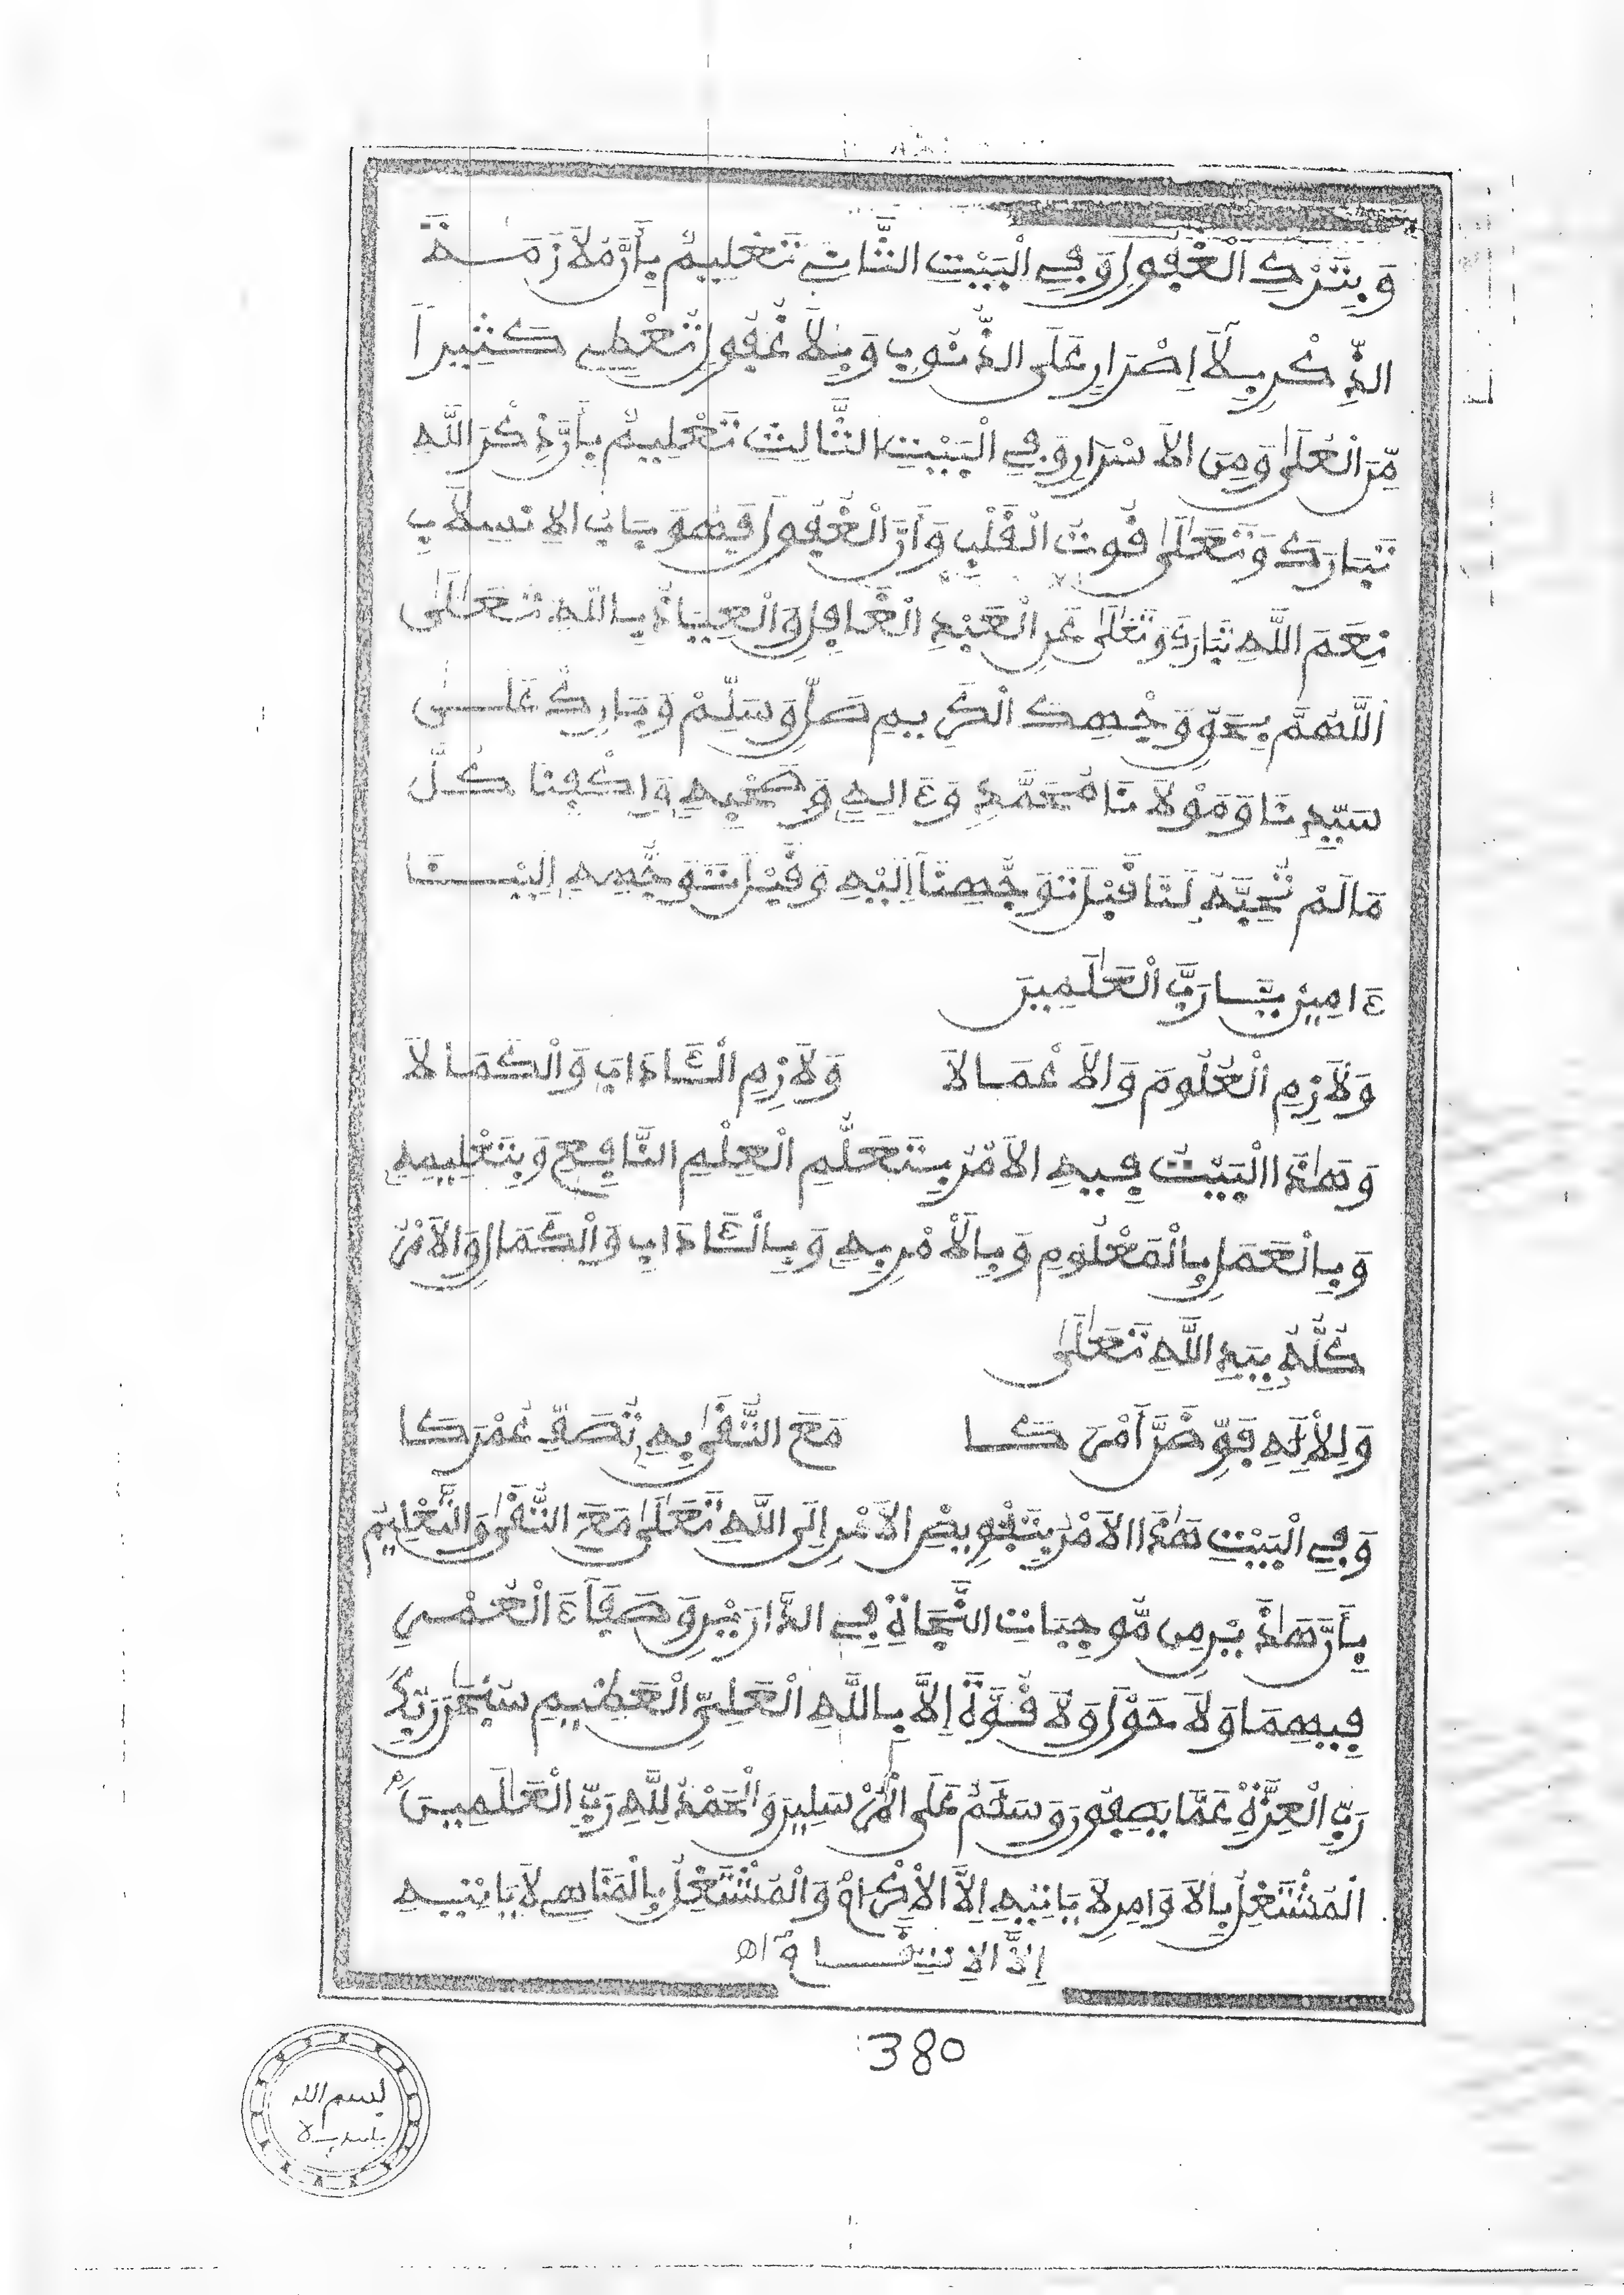 وَبِتَرْكِ الْغُفُولِ وَفِي الْبَيْتِ الثَّانِي تَعْلِيمٌ بِأَنَّ مُلَازَمَةَ
الذِّكْرِ بِلَا إِصْرَارٍ عَلَى الذُّنُوبِ وَبِلَا غُفُولٍ تُعْطِي كَثِيراً
مِّنَ الْعُلَى وَمِنَ الْأَسْرَارِ وَفِي الْبَيْتِ الثَّالِثِ تَعْلِيمٌ بِأَنَّ ذِكْرَ اللَّهِ
تَبَارَكَ وَتَعَالَى قُوتُ الْقَلْبِ وَأَنَّ الْغُفُولَ فَهْوَ بَابُ الِانْسِلَابِ
نِعَمَ اللَّهِ تَبَارَكَ وَتَعَالَى عَنِ الْعَبْدِ الْغَافِلِ وَالْعِيَاذُ بِاللَّهِ تَعَالَى
اللَّهُمَّ بِحَقِّ وَجْهِكَ الْكَرِيمِ صَلِّ وَسَلِّمْ وَبَارِكْ عَلَى
سَيِّدِنَا وَمَوْلَانَا مُحَمَّدٍ وَءَالِهِ وَصَحْبِهِ وَاكْفِنَا كُلَّ
مَا لَمْ تُحِبَّهُ لَنَا قَبْلَ تَوَجُّهِنَا إِلَيْهِ وَقَبْلَ تَوَجُّهِهِ إِلَيْنَا
ءَامِينَ يَا رَبَّ الْعَٰلَمِينَ
وَلَازِمِ الْعُلُومَ وَالْأَعْمَالَا وَلَازِمِ الْـَٔادَابَ وَالْكَمَالَا
وَهَٰذَا الْبَيْتُ فِيهِ الْأَمْرُ بِتَعَلُّمِ الْعِلْمِ النَّافِعِ وَبِتَعْلِيمِهِ
وَبِالْعَمَلِ بِالْمَعْلُومِ وَبِالْأَمْرِ بِهِ وَبِالْـَٔادَابِ وَالْكَمَالِ وَالْأَمْرُ
كُلُّهُ بِيَدِ اللَّهِ تَعَالَى
وَلِلْإِلَٰهِ فَوِّضَنَّ أَمْرَكَا مَعَ التُّقَى بِهِ تُصَفِّ عُمْرَكَا
وَفِي الْبَيْتِ هَٰذَا الْأَمْرُ بِتَفْوِيضِ الْأَمْرِ إِلَى اللَّهِ تَعَالَى مَعَ التُّقَى وَالتَّعْلِيمُ
بِأَنَّ هَٰذَيْنِ مِن مُّوجِبَاتِ النَّجَاةِ فِي الدَّارَيْنِ وَصَفَاءَ الْعُمْرِ
فِيهِمَا وَلَا حَوْلَ وَلَا قُوَّةَ إِلَّا بِاللَّهِ الْعَلِيِّ الْعَظِيمِ سُبْحَٰنَ رَبِّكَ
رَبِّ الْعِزَّةِ عَمَّا يَصِفُونَ وَسَلَٰمٌ عَلَى الْمُرْسَلِينَ وَالْحَمْدُ لِلَّهِ رَبِّ الْعَٰلَمِينَ
الْمُشْتَغِلُ بِالْأَوَامِرِ لَا يَاتِيهِ إِلَّا الْإِكْرَامُ وَالْمُشْتَغِلُ بِالْمَنَاهِي لَا يَاتِيهِ
إِلَّا الِانْتِقَامُ اهـ
380
بسم الله